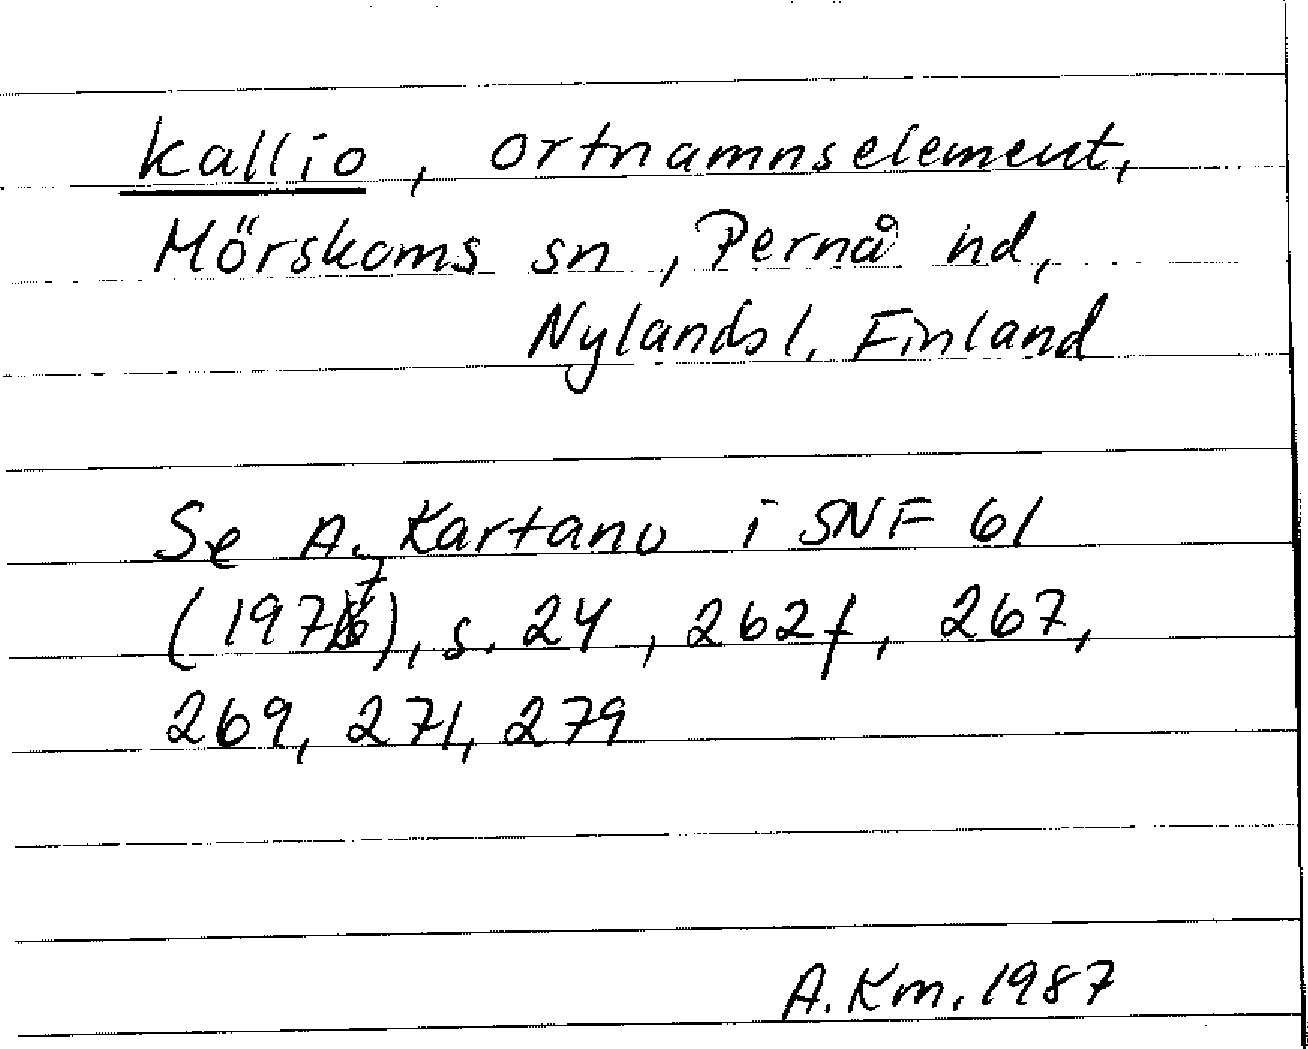 kallio, ortnamnselement,
Mörskoms sn, Pernå hd,
Nylands l. Finland
Se A. Kartano i SNF 61
(1977), s. 24, 262f, 267,
269, 271, 279
A. Km. 1987